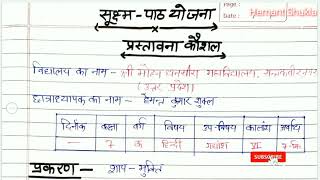 Page:
Date:
Hemant Shukla
सूक्ष्म-पाठ योजना
प्रस्तावना कौशल
विद्यालय का नाम - श्री
महाविद्यालय,
(उत्तर प्रदेश)
छात्राध्यापक का नाम - हेमन्त कुमार शुक्ल
दिनाँक कक्षा वर्ग विषय उप-विषय कालांश अवधि
- 7 क हिन्दी गद्यांश VI 7-मि.
SUBSCRIBE
प्रकरण - शाप-मुक्ति